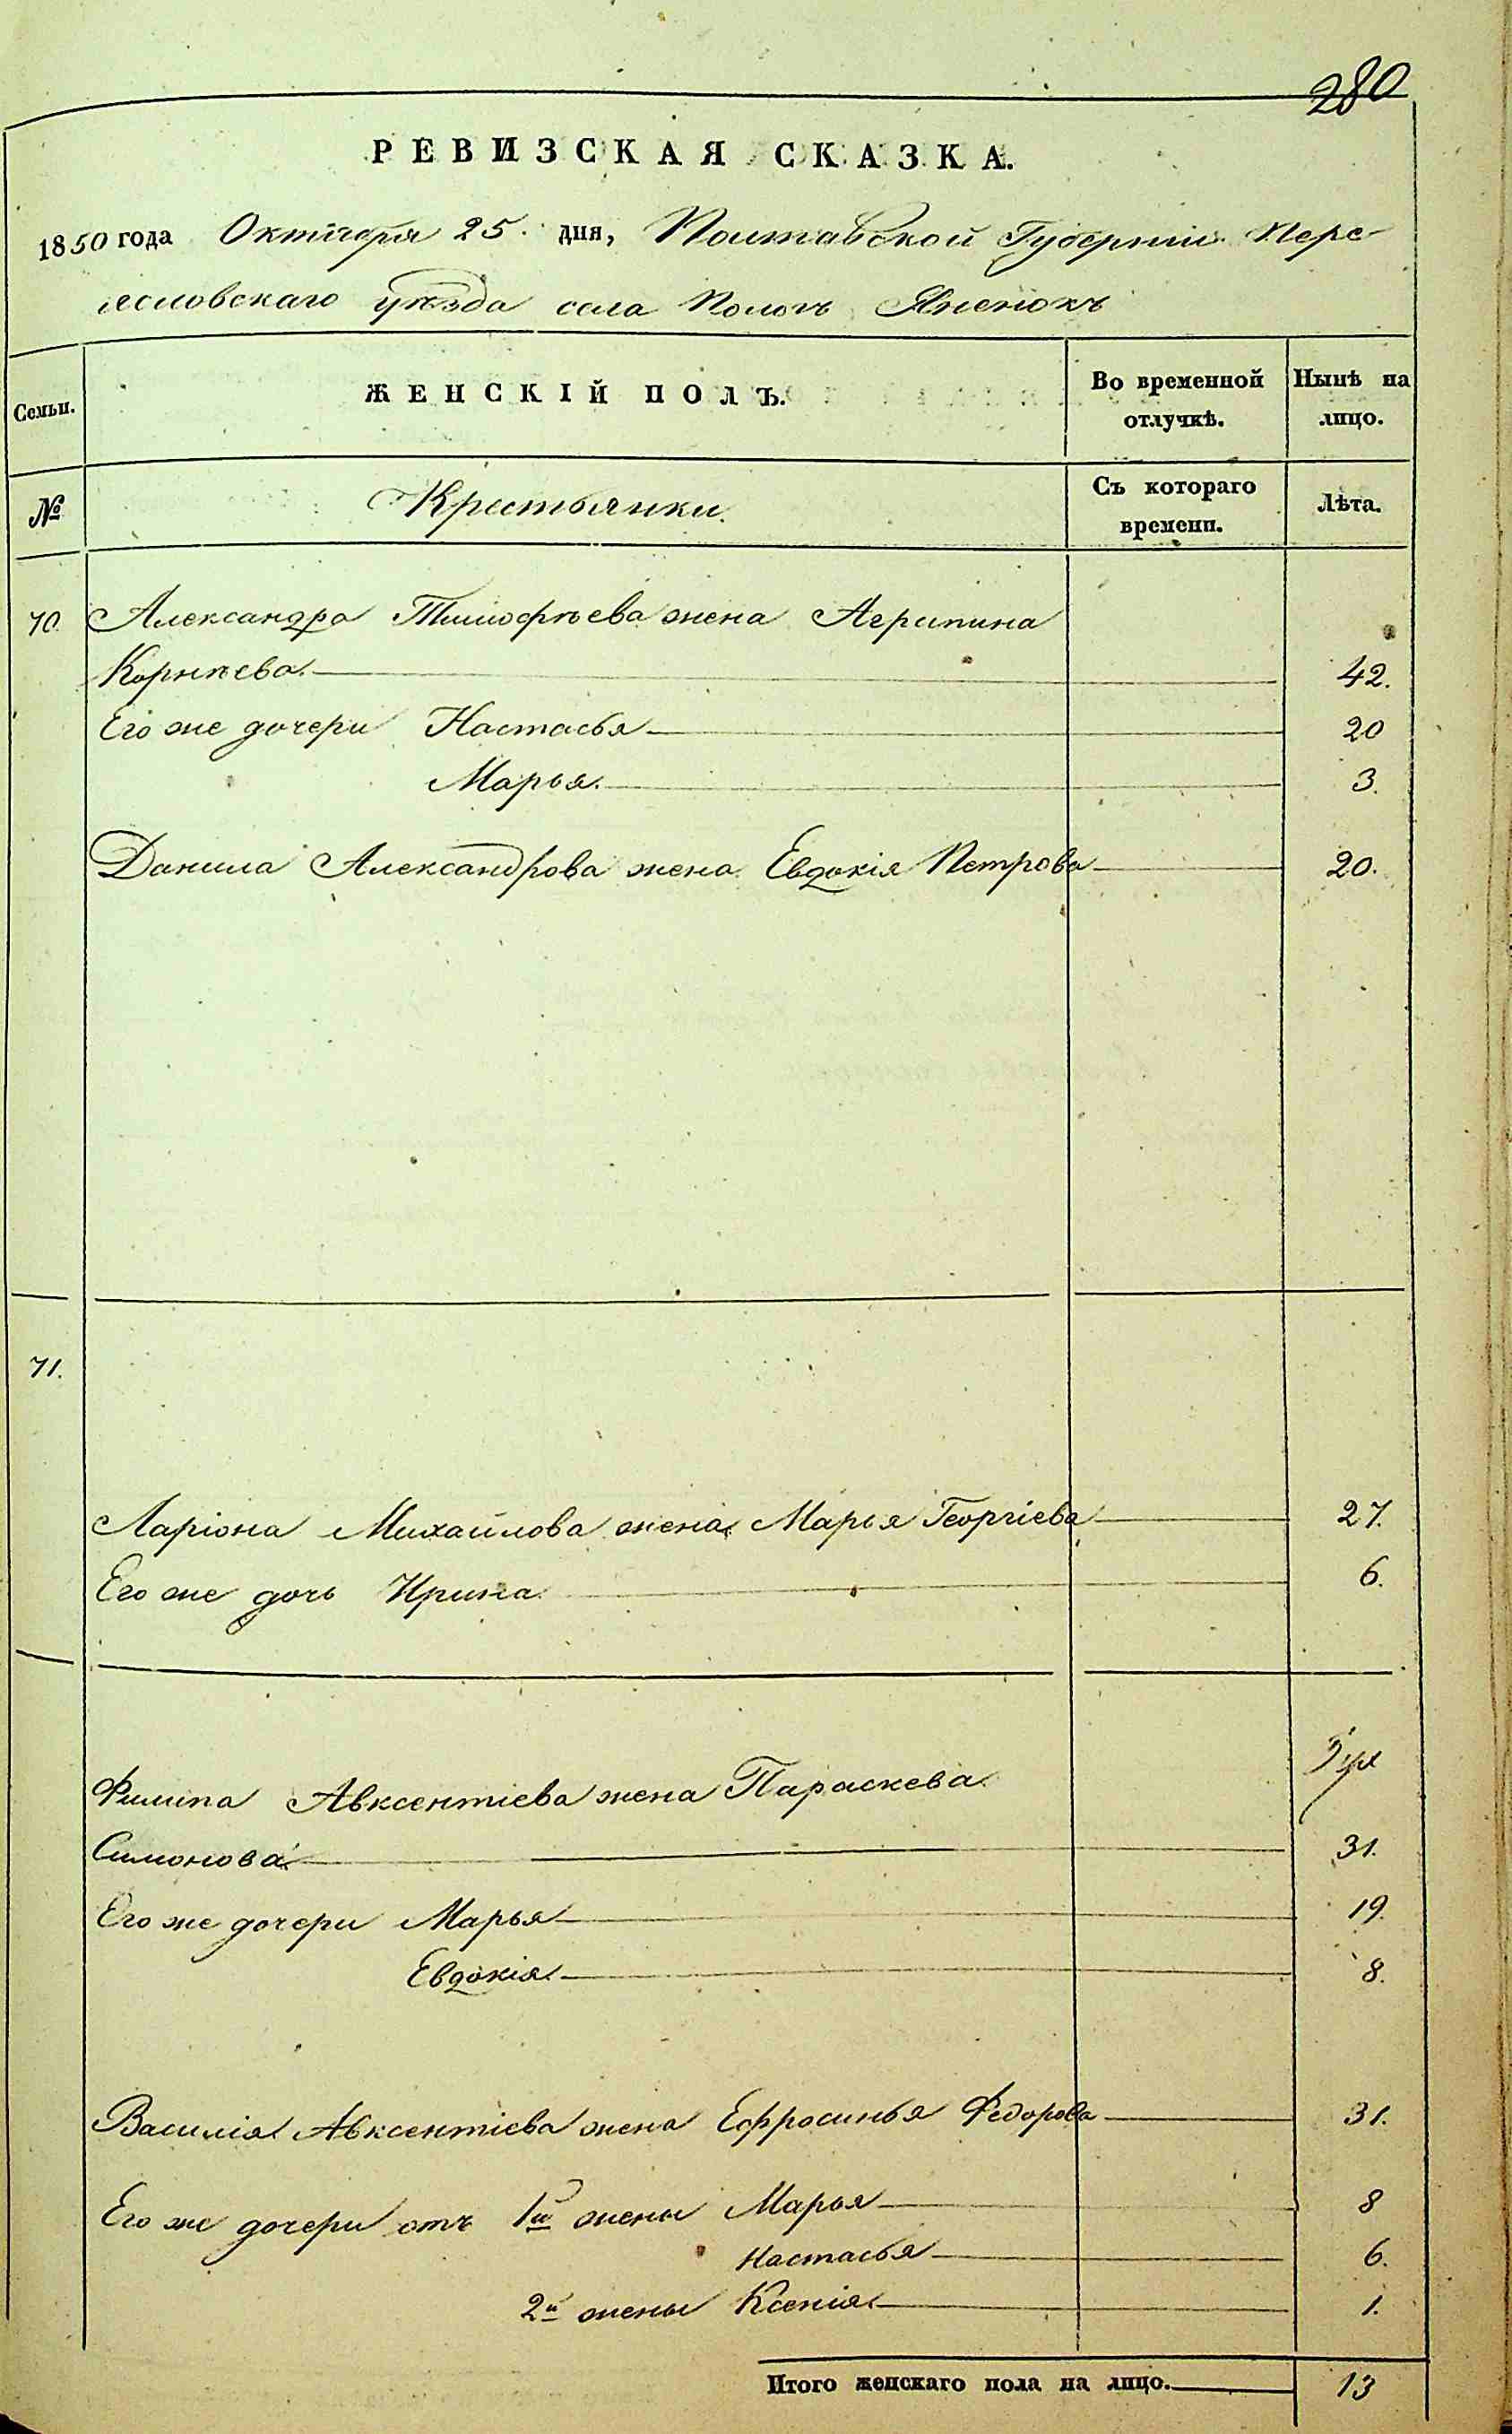 280
РЕВИЗСКАЯ СКАЗКА.
1850 года Октября 25. дня, Полтавской Губерніи Пере-
яславскаго уѣзда села Пологъ Яненокъ
Семьи. ЖЕНСКІЙ ПОЛЪ. Во временной отлучкѣ. Нынѣ на лицо.
№ Крестьянки. Съ котораго времени. Лѣта.
70. Александра Тимофѣева жена Агрипина
Корнѣева. 42.
Его же дочери Настасья 20
Марья. 3.
Данила Александрова жена Евдокія Петрова 20.
71.
Ларіона Михайлова жена Марья Георгіева 27.
Его же дочь Ирина 6.
Филипа Авксентіева жена Параскева
Симонова 31.
Его же дочери Марья 19.
Евдокія 8.
Василія Авксентіева жена Ефросинья Федорова 31.
Его же дочери отъ 1й жены Марья 8
Настасья 6.
2й жены Ксенія 1.
Итого женскаго пола на лицо. 13